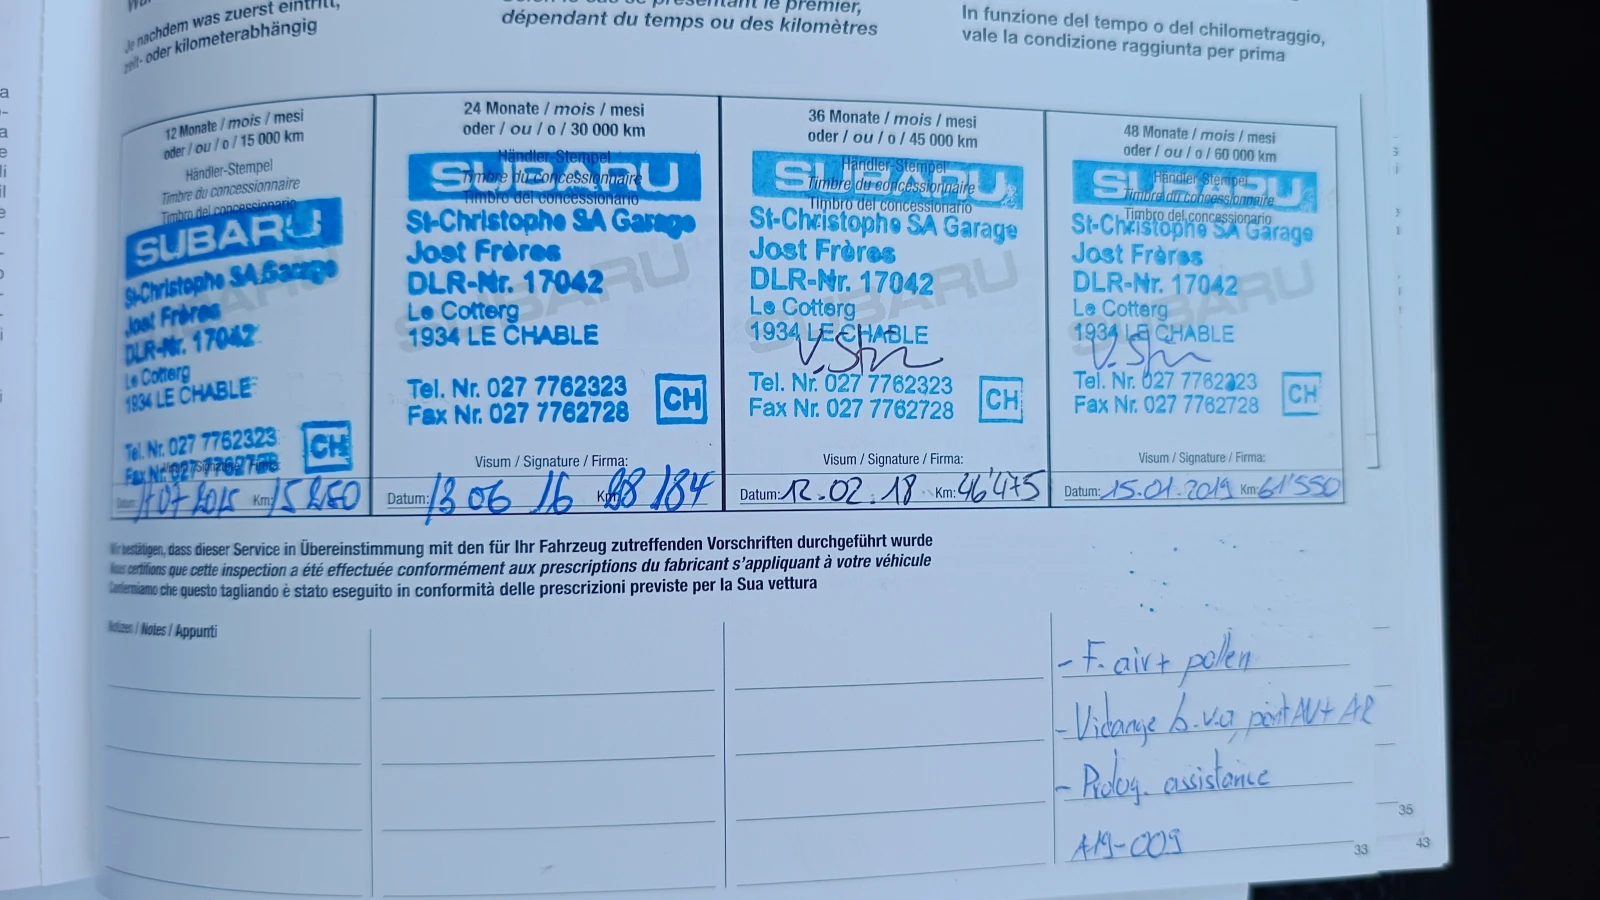 Je nachdem was zuerst eintritt,
zeit- oder kilometerabhängig
le premier,
dépendant du temps ou des kilomètres
In funzione del tempo o del chilometraggio,
vale la condizione raggiunta per prima
12 Monate / mois / mesi
oder / ou / o / 15 000 km
Händler-Stempel
Timbre du concessionnaire
Timbro del concessionario
SUBARU
St-Christophe SA Garage
Jost Frères
DLR-Nr. 17042
Le Cotterg
1934 LE CHABLE
Tel. Nr. 027 7762323
Fax Nr. 027 7762728
CH
Datum: 07 2015 Km: 15 250
24 Monate / mois / mesi
oder / ou / o / 30 000 km
Händler-Stempel
Timbre du concessionnaire
Timbro del concessionario
SUBARU
St-Christophe SA Garage
Jost Frères
DLR-Nr. 17042
Le Cotterg
1934 LE CHABLE
Tel. Nr. 027 7762323
Fax Nr. 027 7762728
CH
Visum / Signature / Firma:
Datum: 13 06 16 Km: 28 184
36 Monate / mois / mesi
oder / ou / o / 45 000 km
Händler-Stempel
Timbre du concessionnaire
Timbro del concessionario
SUBARU
St-Christophe SA Garage
Jost Frères
DLR-Nr. 17042
Le Cotterg
1934 LE CHABLE
Tel. Nr. 027 7762323
Fax Nr. 027 7762728
CH
Visum / Signature / Firma:
Datum: 12.02.18 Km: 46'475
48 Monate / mois / mesi
oder / ou / o / 60 000 km
Händler-Stempel
Timbre du concessionnaire
Timbro del concessionario
SUBARU
St-Christophe SA Garage
Jost Frères
DLR-Nr. 17042
Le Cotterg
1934 LE CHABLE
Tel. Nr. 027 7762323
Fax Nr. 027 7762728
CH
Visum / Signature / Firma:
Datum: 15.01.2019 Km: 61'550
Wir bestätigen, dass dieser Service in Übereinstimmung mit den für Ihr Fahrzeug zutreffenden Vorschriften durchgeführt wurde
Nous certifions que cette inspection a été effectuée conformément aux prescriptions du fabricant s'appliquant à votre véhicule
Confermiamo che questo tagliando è stato eseguito in conformità delle prescrizioni previste per la Sua vettura
Notizen / Notes / Appunti
- F. air + pollen
- Vidange b.v.a, pont AV + AR
- Prolog. assistance
A19-009
33
35
43